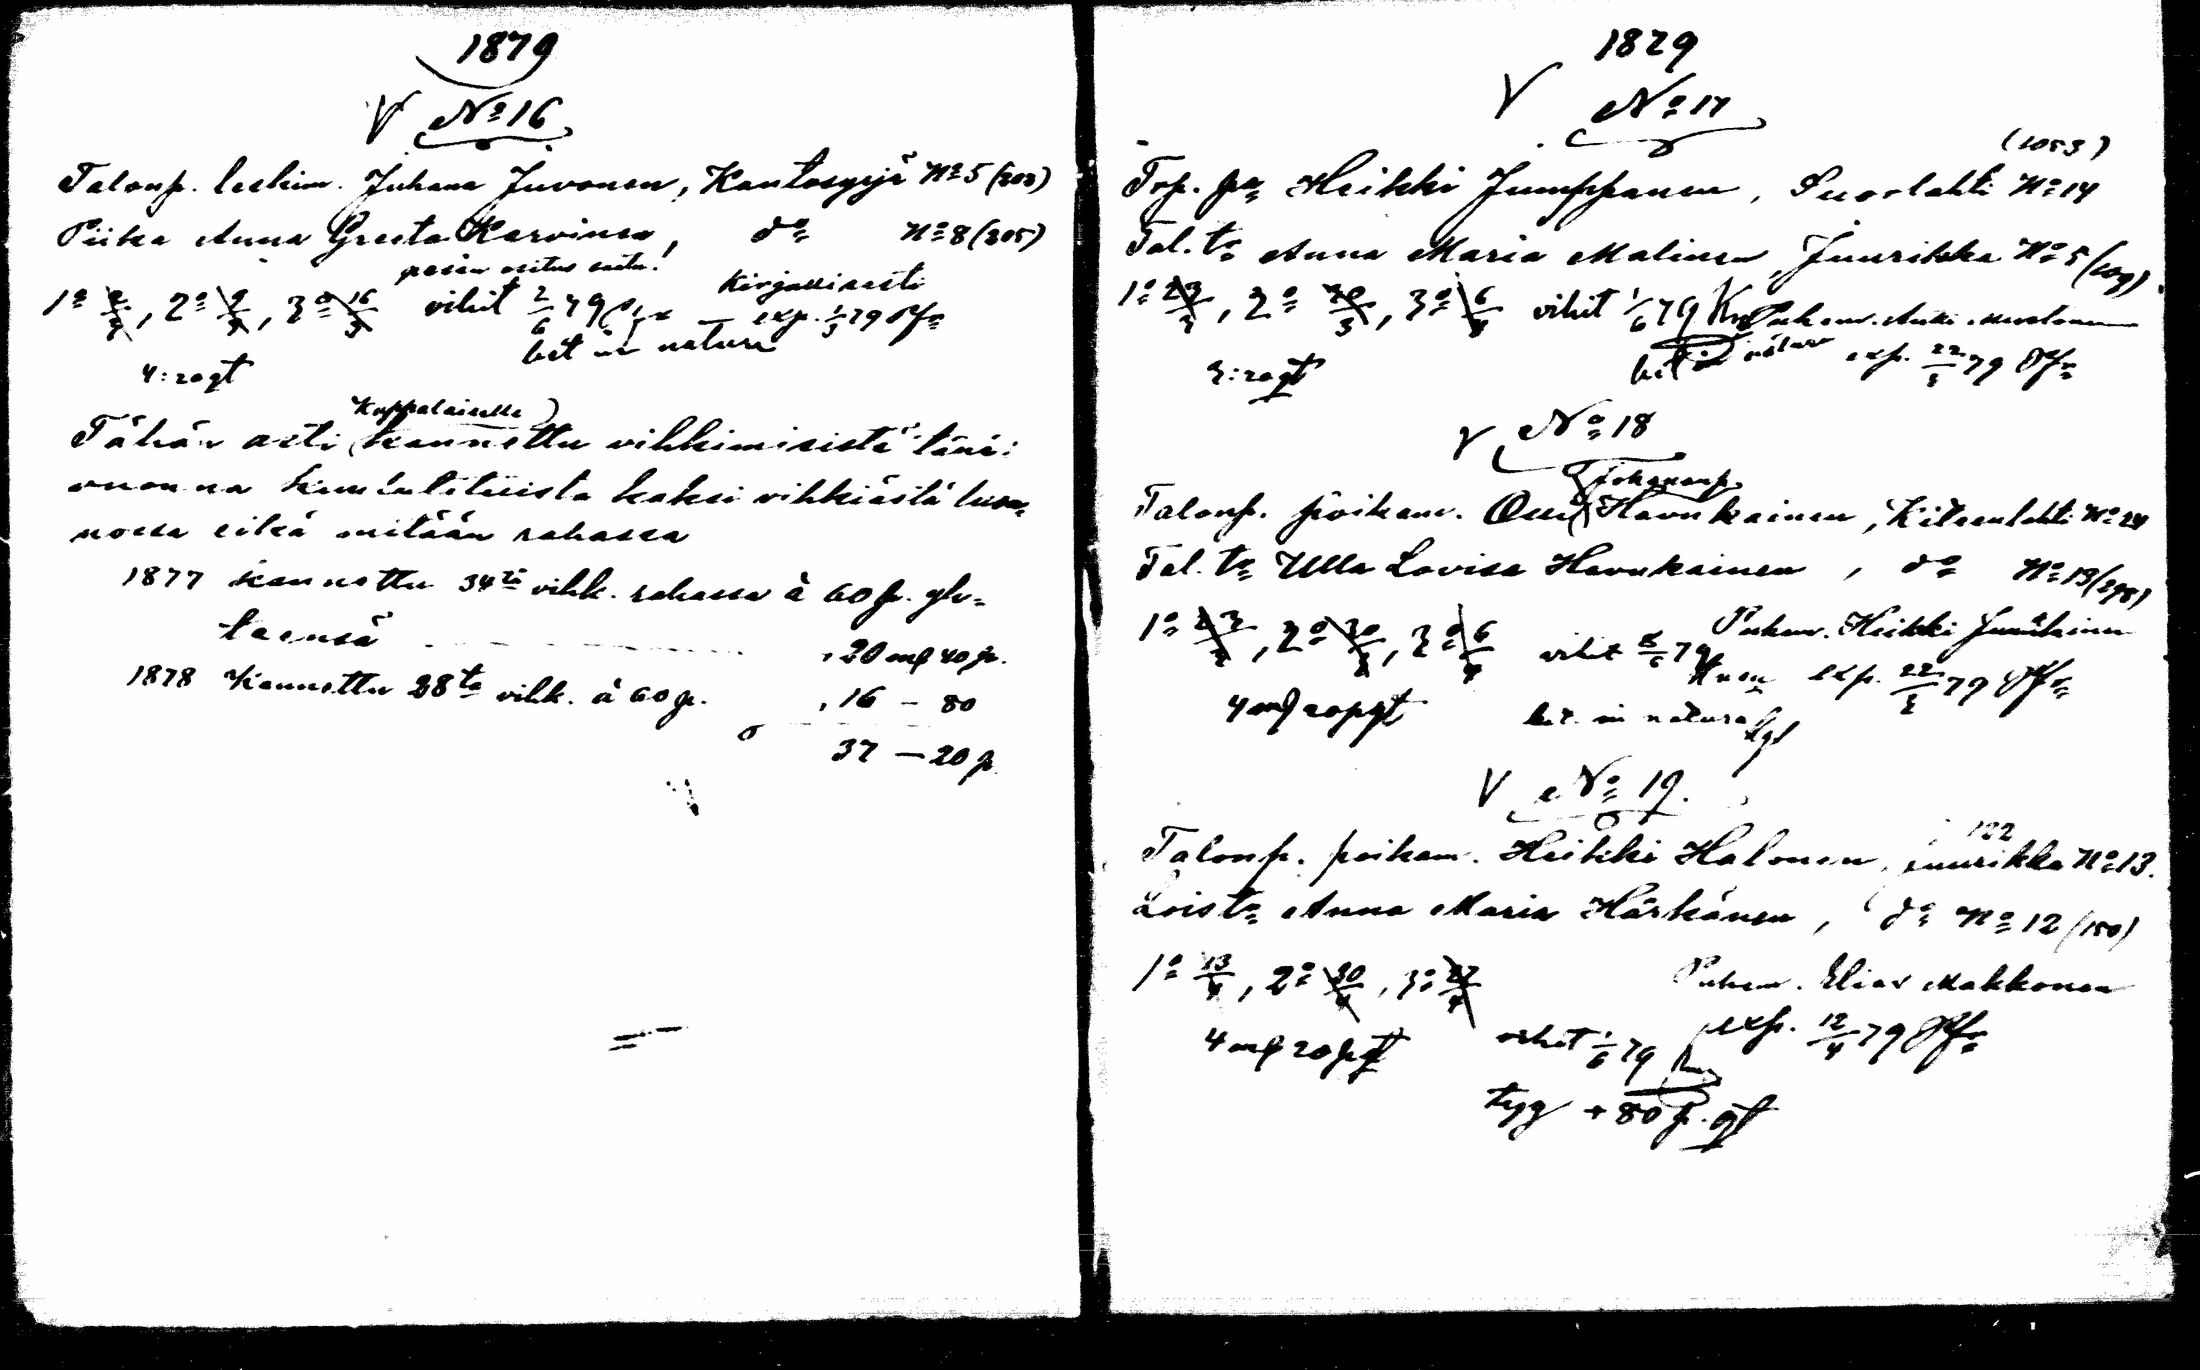 1879
V No 16
Talonp. leskim. Juhana Juvonen, Kontiosyrjä No 5 (203)
Piika Anna Greeta Karvinen, do No 8 (205)
pesän ositus saatu! Kirjallisesti
1o 2/3, 2o 9/3, 3o 16/3 vihit 2/6 79 exp. 1/3 79
bet in natura
4: 20 gt
Kappalaiselle
Tähän asti kannettu vihkimisistä tänä
vuonna kuulutetuista kaksi vihkiäistä luon-
nossa eikä mitään rahassa
1877 kannettu 34tä vihk. rahassa à 60 p. yh-
teensä 20 mk 40 p.
1878 Kannettu 28ta vihk. à 60 p. 16 - 80
37 - 20 p.
1879
V No 17
(1053)
Trp. pa Heikki Jumppanen, Suurlahti No 14
Tal. tr Anna Maria Malinen, Juurikka No 5 (109)
1o 23/3, 2o 30/3, 3o 6/4 vihit 1/6 79 Puhem. Antti Mustonen
bet in natur exp. 22/3 79
4: 20 gt
V No 18
Johananp.
Talonp. poikam. Ossi Havukainen, Kiteenlahti No 24
Tal. tr Ulla Lovisa Havukainen, do No 13 (298)
1o 23/3, 2o 30/3, 3o 6/4 Puhem. Heikki
vihit 79 exp. 22/3 79
4 mk 20 p gt bet. in natura gt
V No 19.
122
Talonp. poikam. Heikki Halonen, Juurikka No 13.
Loistr Anna Maria Härkönen, do No 12 (150)
1o 13/4, 2o 20/4, 3o 27/4 Puhem. Elias Makkonen
4 mk 20 p gt vihit 1/6 79 exp. 12/4 79
tyg + 80 p. gt